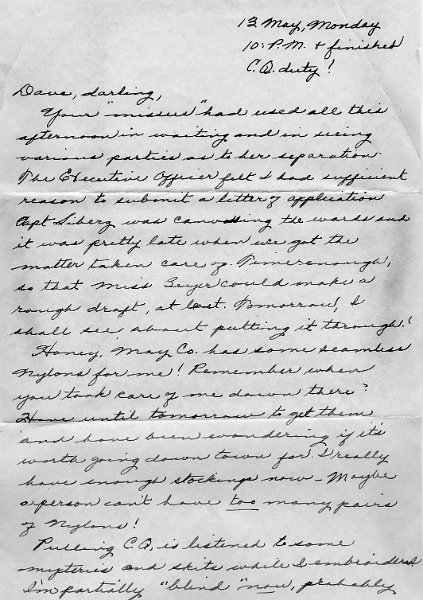 13 May, Monday
10: P.M. & finished
C.Q. duty!
Dave, darling,
Your "missus" had used all this
afternoon in waiting and in seeing
various parties as to her separation.
The Executive Officer felt I had sufficient
reason to submit a letter of application
Capt. was canvassing the wards and
it was pretty late when we got the
matter taken care of.
so that Miss Geyer could make a
rough draft, at least. Tomorrow, I
shall see about putting it through!
Honey, May Co. has some seamless
Nylons for me! Remember when
you took care of me down there?
Have until tomorrow to get them
and have been wondering if it's
worth going down town for. I really
have enough stockings now - Maybe
a person can't have too many pairs
of Nylons!
Pulling C.Q. is listened to some
mysteries and skits while I embroidered
I'm partially "blind" now, probably